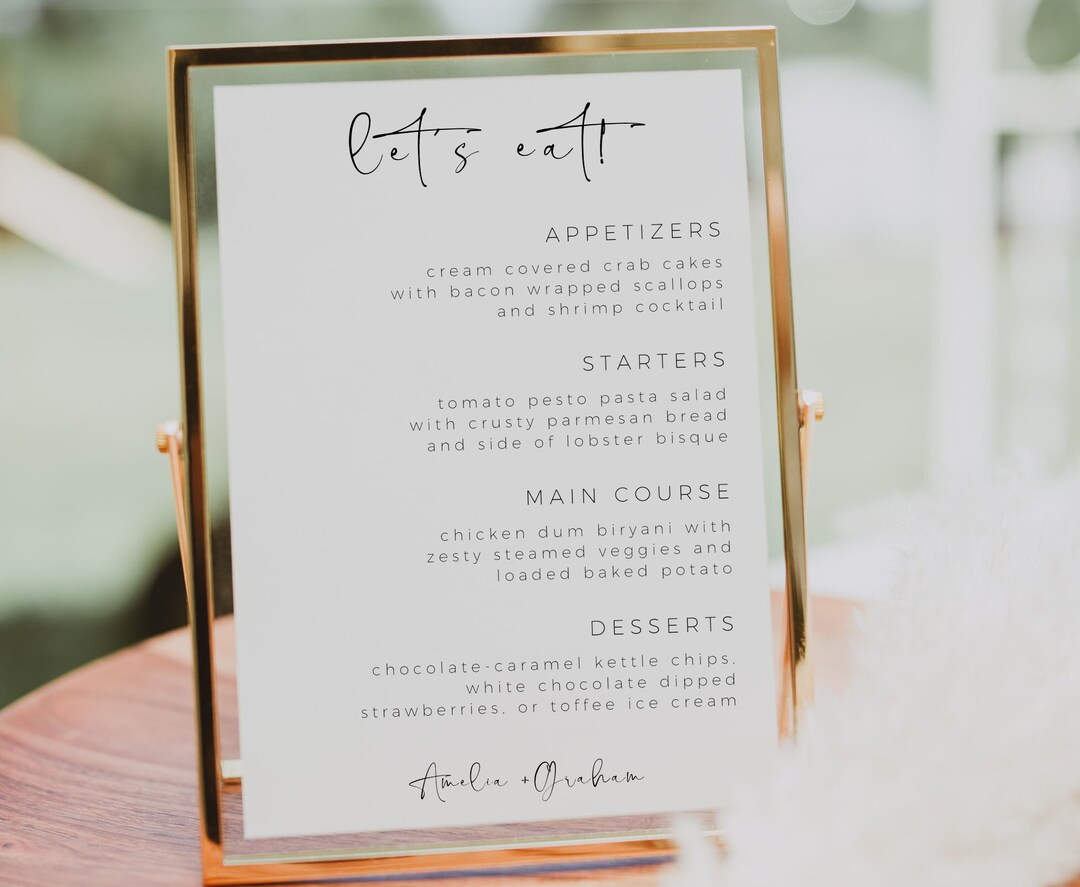 let's eat!
APPETIZERS
cream covered crab cakes
with bacon wrapped scallops
and shrimp cocktail
STARTERS
tomato pesto pasta salad
with crusty parmesan bread
and side of lobster bisque
MAIN COURSE
chicken dum biryani with
zesty steamed veggies and
loaded baked potato
DESSERTS
chocolate-caramel kettle chips,
white chocolate dipped
strawberries, or toffee ice cream
Amelia + Graham